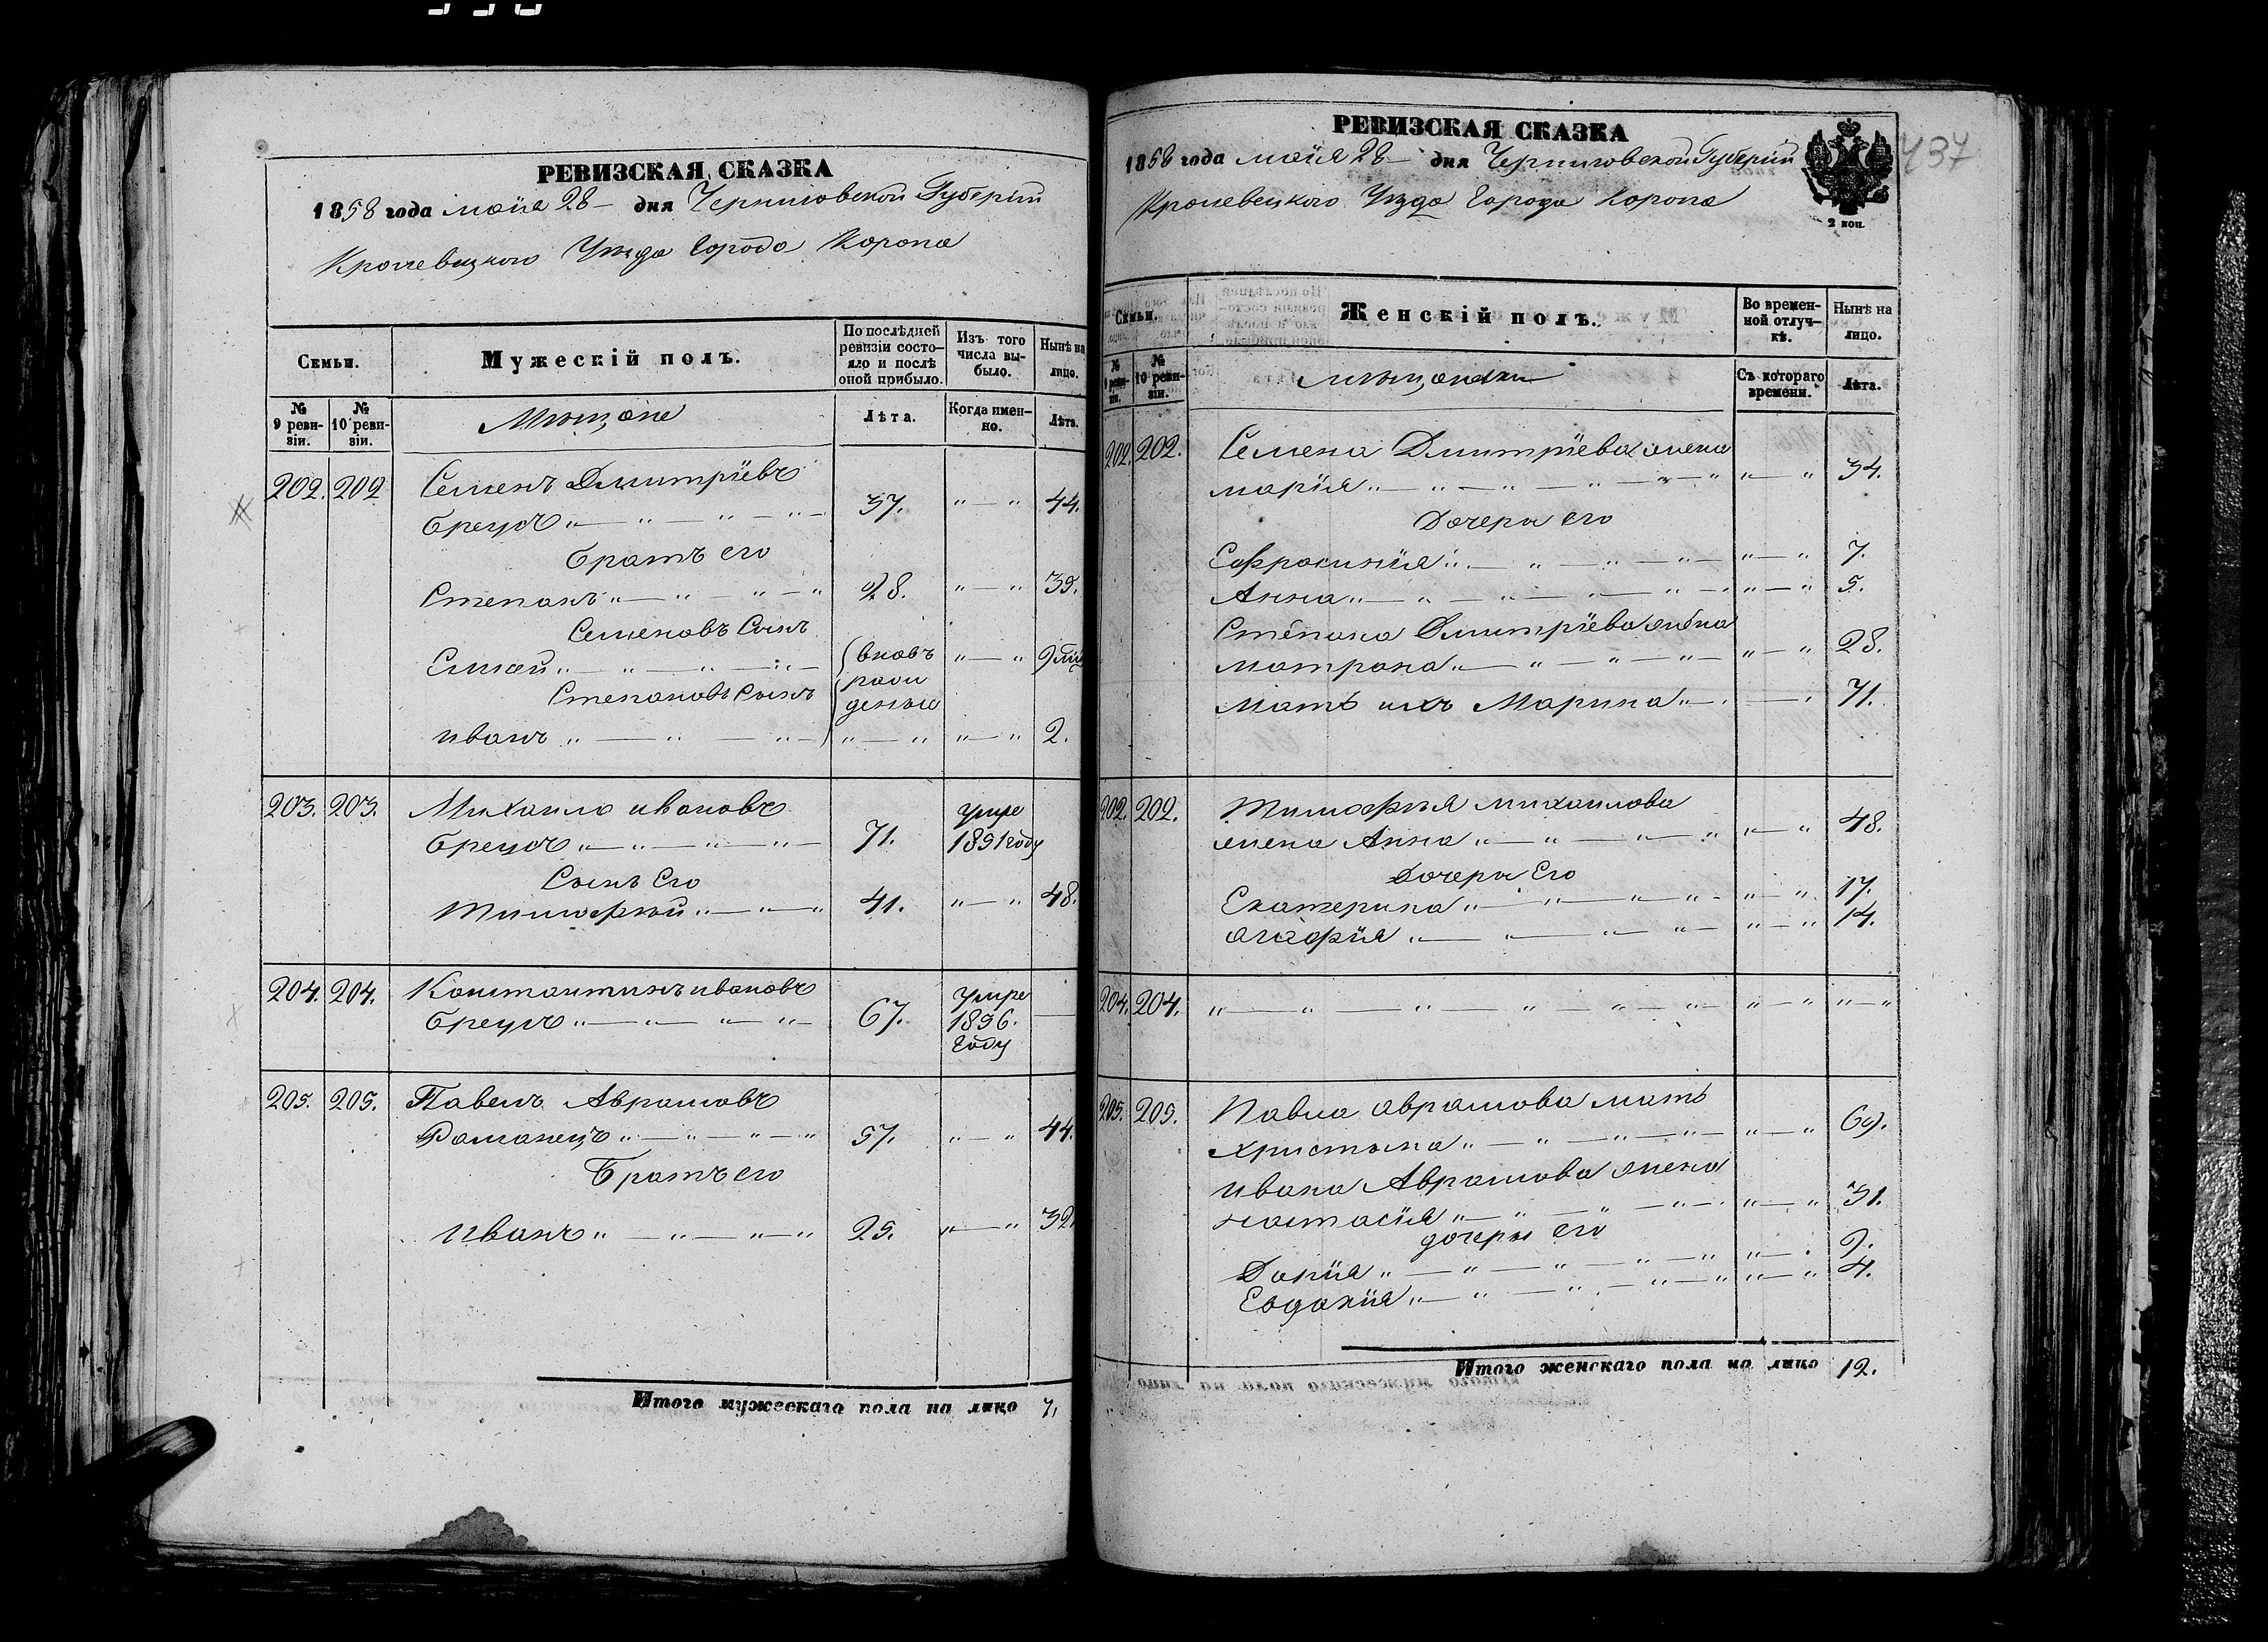 РЕВИЗСКАЯ СКАЗКА
1858 года маія 28 дня Черниговской Губерніи
Кролевецкого Уезда Города Коропа
Семьи.
Мужескій полъ.
По послѣдней ревизіи состояло и послѣ оной прибыло.
Изъ того числа выбыло.
Нынѣ на лицо.
№ 9 ревизіи.
№ 10 ревизіи.
Мѣщане
Лѣта.
Когда именно.
Лѣта.
202. 202 Семенъ Дмитріевъ
Бреусъ 37. 44.
Братъ его
Степанъ 28. 35.
Семеновъ Сынъ
вновь
Степановъ Сынъ
Иванъ 2.
203. 203. Михаило Ивановъ умре
Бреусъ 71. 1851 году
Сынъ Его
Тимофѣй 41. 48.
204. 204. Константинъ Ивановъ умре
Бреусъ 67. 1856.
Году
205. 205. Павелъ Аврамовъ
Романецъ 37. 44.
Братъ его
Иванъ 25. 32.
Итого мужескаго пола на лицо 7.
РЕВИЗСКАЯ СКАЗКА
1858 года маія 28 дня Черниговской Губерніи
437
Кролевецкого Уезда Города Коропа
2 коп.
Семьи.
Женскій полъ.
Во временной отлучкѣ.
Нынѣ на лицо.
№ 9 ревизіи.
№ 10 ревизіи.
мѣщанки
Съ котораго времени.
Лѣта.
202. 202. Семена Дмитріева жена
Марія 34.
Дочери его
Ефросинія 7.
Анна 5.
Степана Дмитріева жена
Матрона 28.
Мать ихъ Марина 71.
202. 202. Тимофѣя Михаилова
жена Анна 48.
Дочери Его
Екатерина 17.
Агафія 14.
204. 204.
205. 205. Павла Аврамова мать
Христина 69.
Ивана Аврамова жена
Настасія 31.
дочери его
Дарія 9.
Евдокія 4.
Итого женскаго пола на лицо 12.